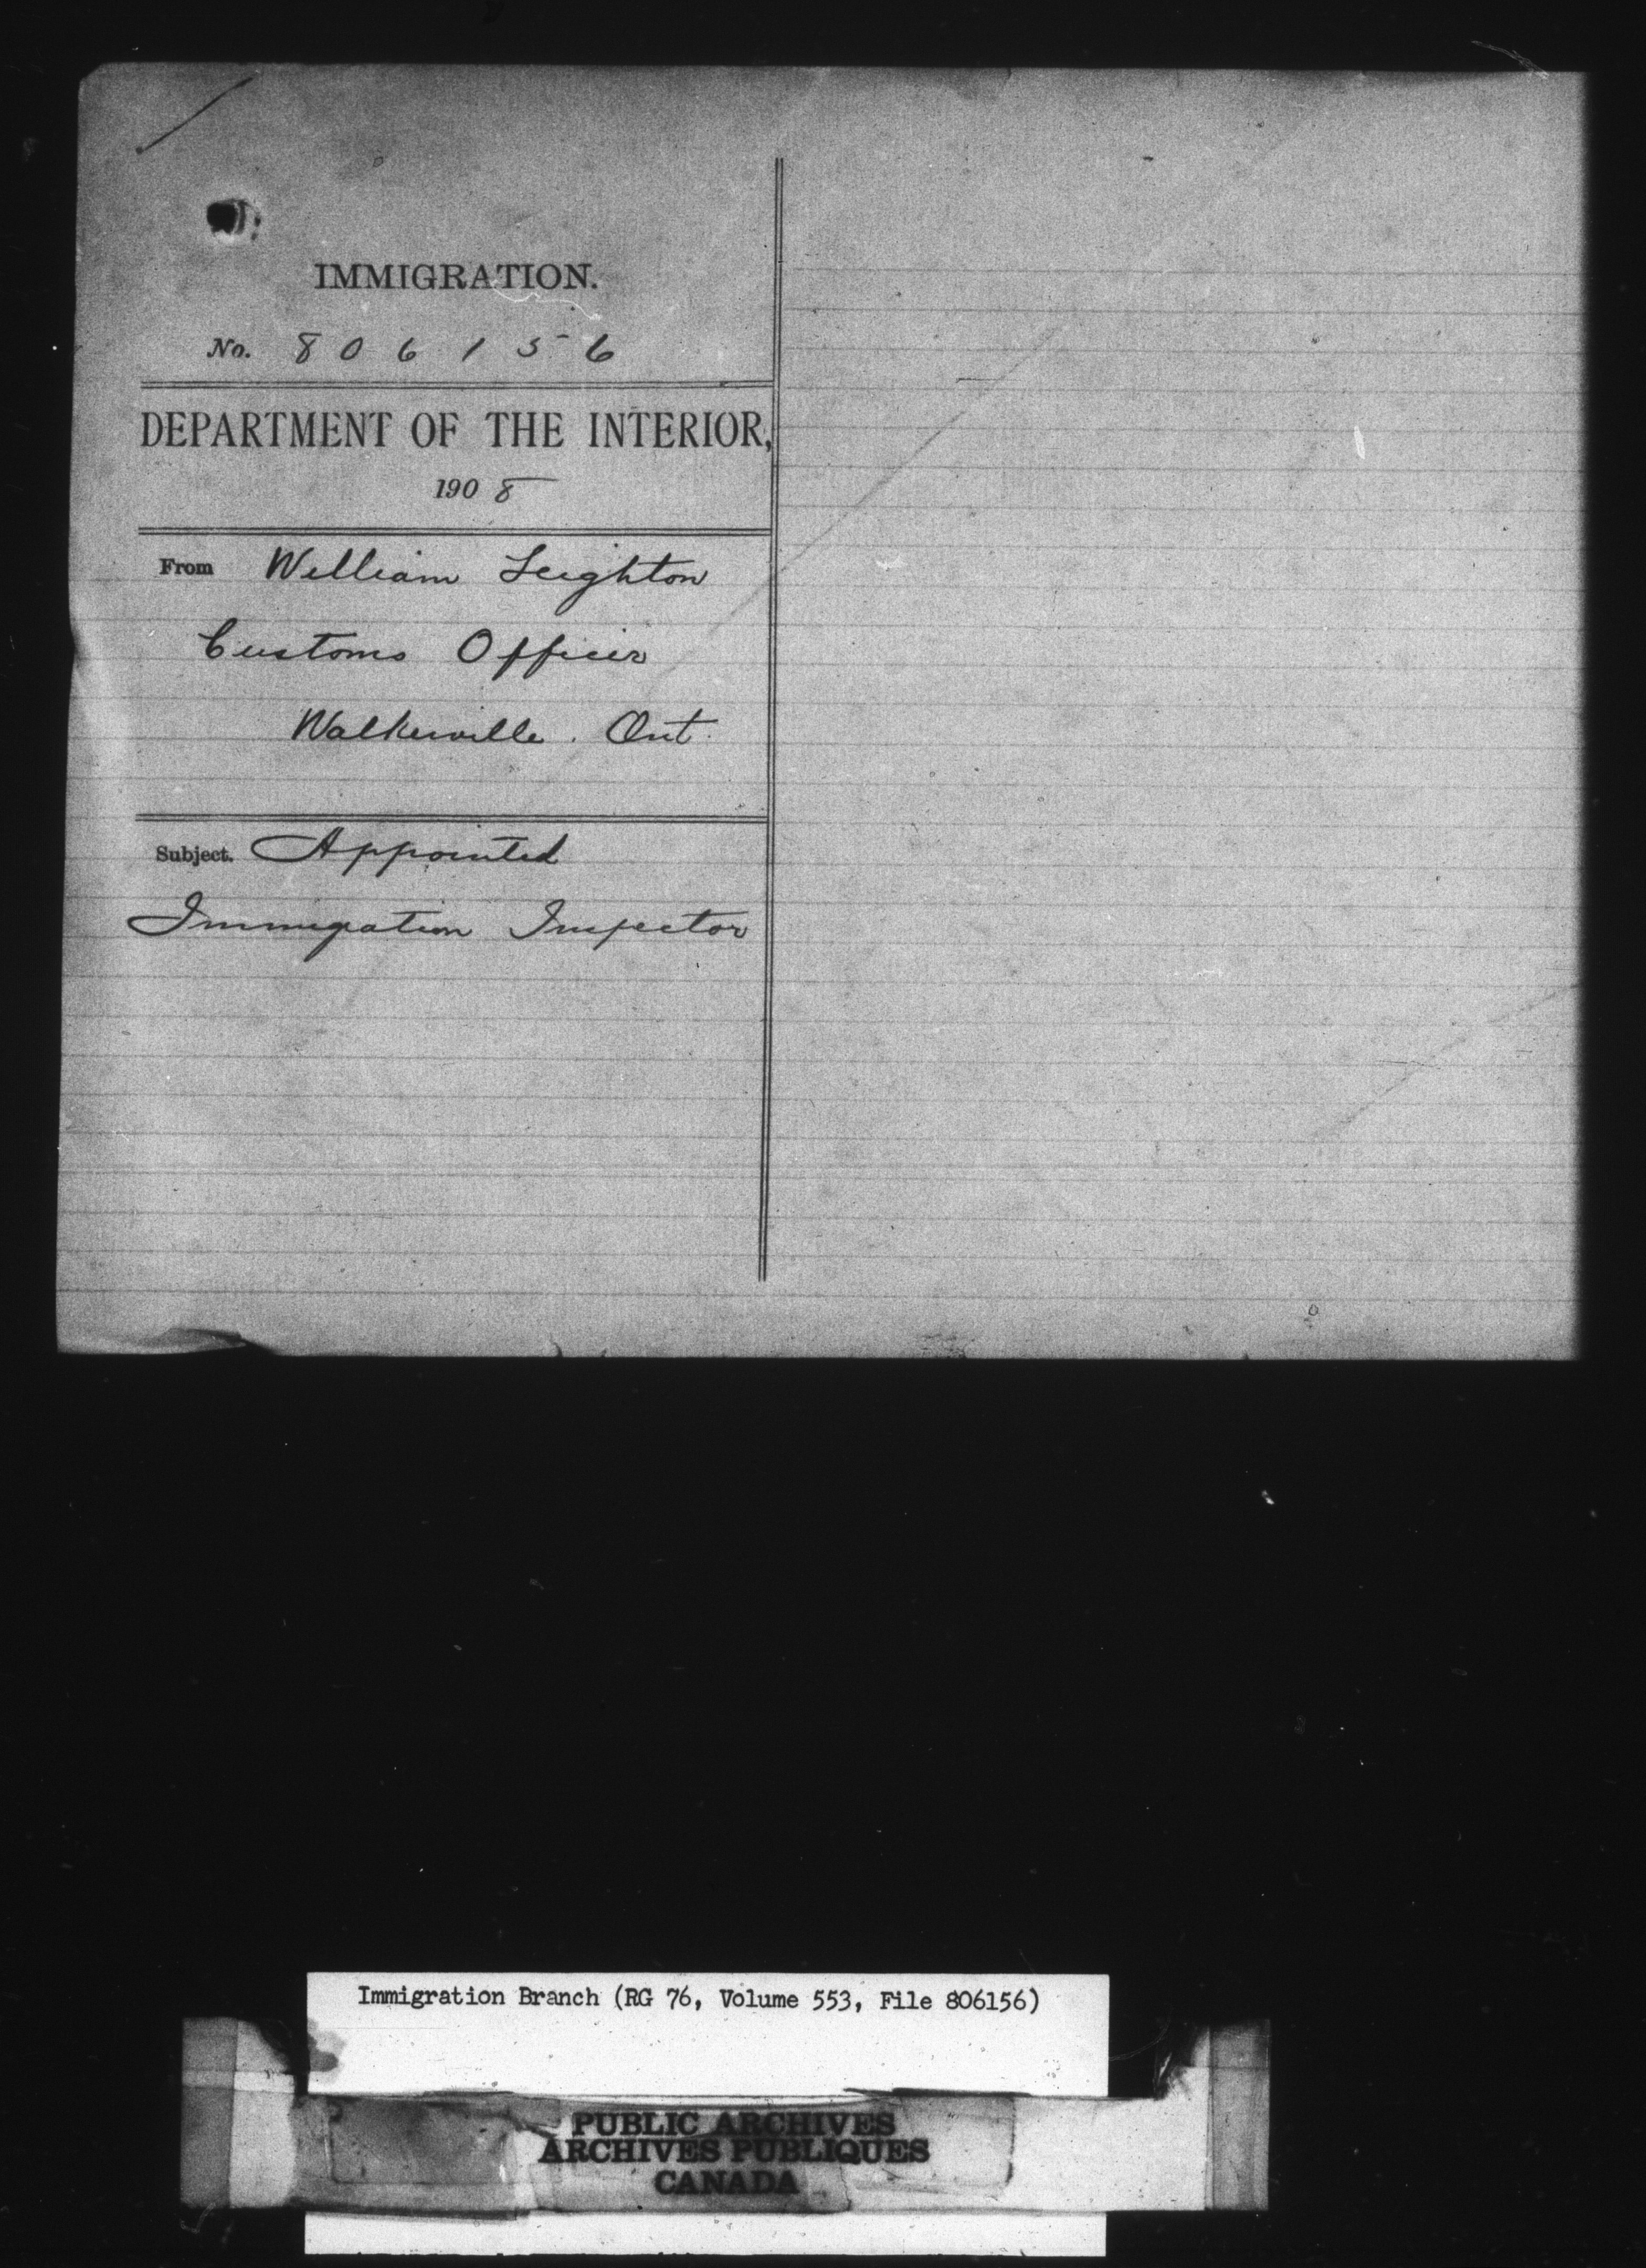 IMMIGRATION.
No. 806156
DEPARTMENT OF THE INTERIOR,
1908
From William Leighton
Customs Officer
Walkerville. Ont.
Subject. Appointed
Immigration Inspector
Immigration Branch (RG 76, Volume 553, File 806156)
PUBLIC ARCHIVES
ARCHIVES PUBLIQUES
CANADA